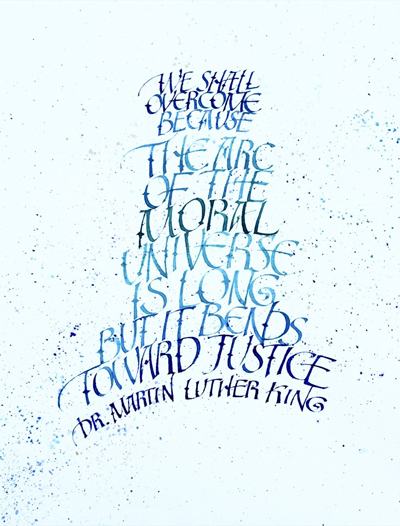 WE SHALL
OVERCOME
BECAUSE
THE ARC
OF THE
MORAL
UNIVERSE
IS LONG
BUT IT BENDS
TOWARD JUSTICE
DR. MARTIN LUTHER KING